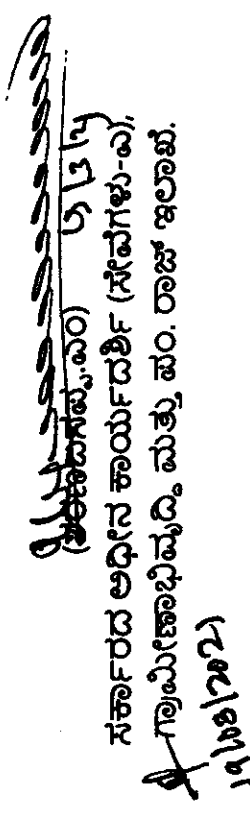 (ಶರಣಬಸಪ್ಪ.ಎಂ)
ಸರ್ಕಾರದ ಅಧೀನ ಕಾರ್ಯದರ್ಶಿ (ಸೇವೆಗಳು-ಎ),
ಗ್ರಾಮೀಣಾಭಿವೃದ್ಧಿ ಮತ್ತು ಪಂ. ರಾಜ್ ಇಲಾಖೆ.